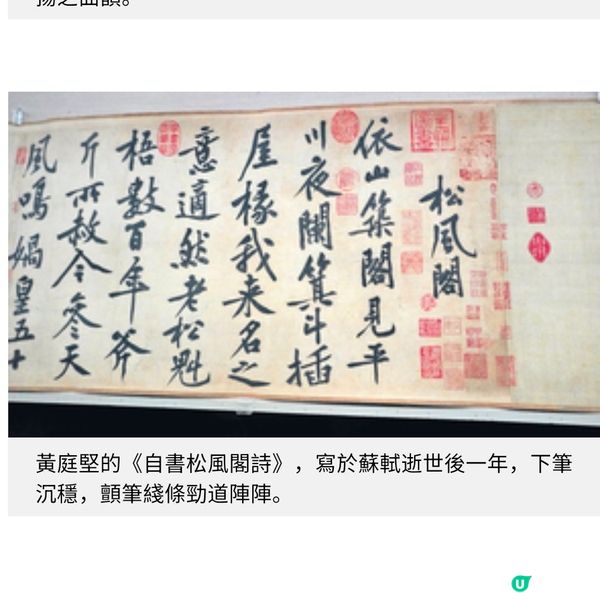 松風閣
依山築閣見平
川夜闌箕斗插
屋椽我来名之
意適然老松魁
梧數百年斧
斤所赦今參天
風鳴媧皇五十
黃庭堅的《自書松風閣詩》，寫於蘇軾逝世後一年，下筆
沉穩，顫筆綫條勁道陣陣。
U